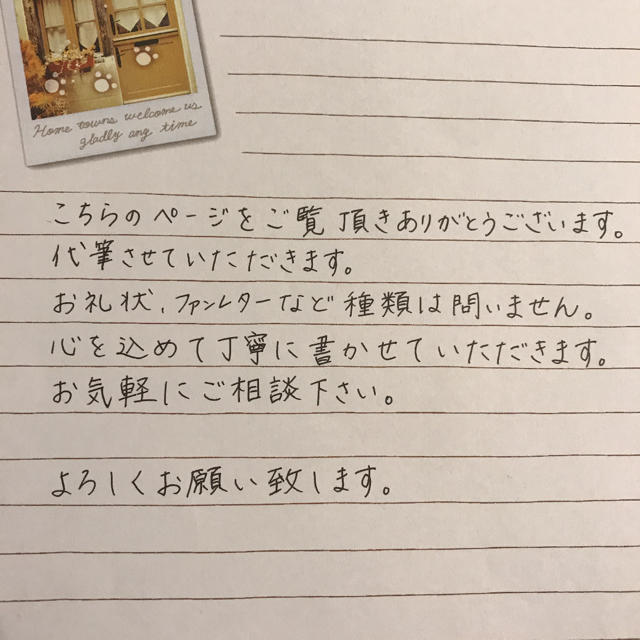 Home towns welcome us
gladly any time
こちらのページをご覧頂きありがとうございます。
代筆させていただきます。
お礼状、ファンレターなど種類は問いません。
心を込めて丁寧に書かせていただきます。
お気軽にご相談下さい。
よろしくお願い致します。